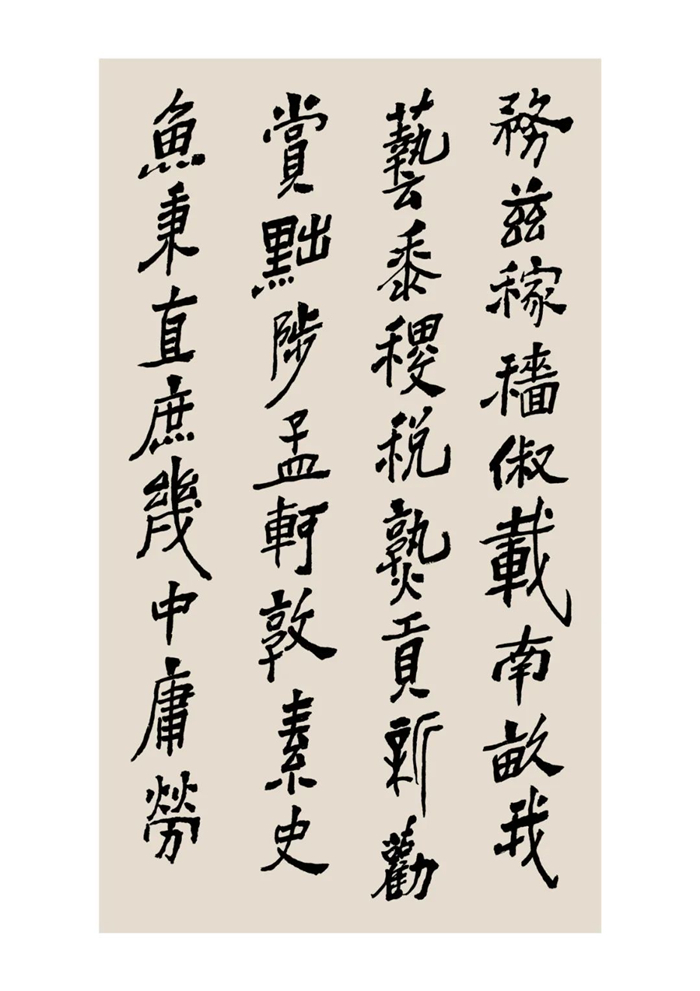 務茲稼穡俶載南畝我
藝黍稷稅熟貢新勸
賞黜陟孟軻敦素史
魚秉直庶幾中庸勞